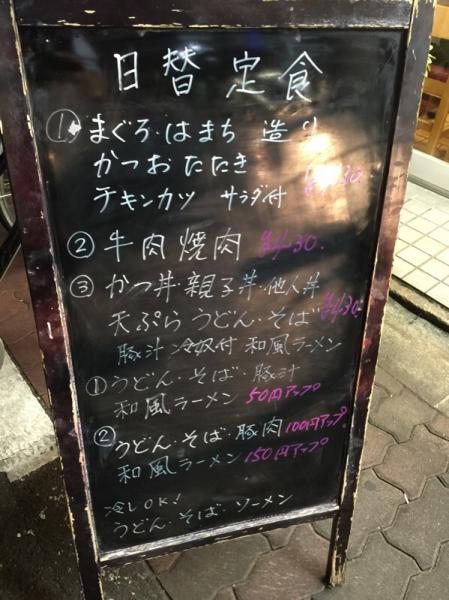 日替定食
① まぐろ・はまち 造り
かつおたたき
チキンカツ サラダ付
② 牛肉焼肉
③ かつ丼・親子丼・他人丼
天ぷら うどん・そば
豚汁 冷奴付 和風ラーメン
① うどん・そば・豚汁
和風ラーメン 50円アップ
② うどん・そば・豚肉 100円アップ
和風ラーメン 150円アップ
冷しOK!
うどん・そば・ソーメン